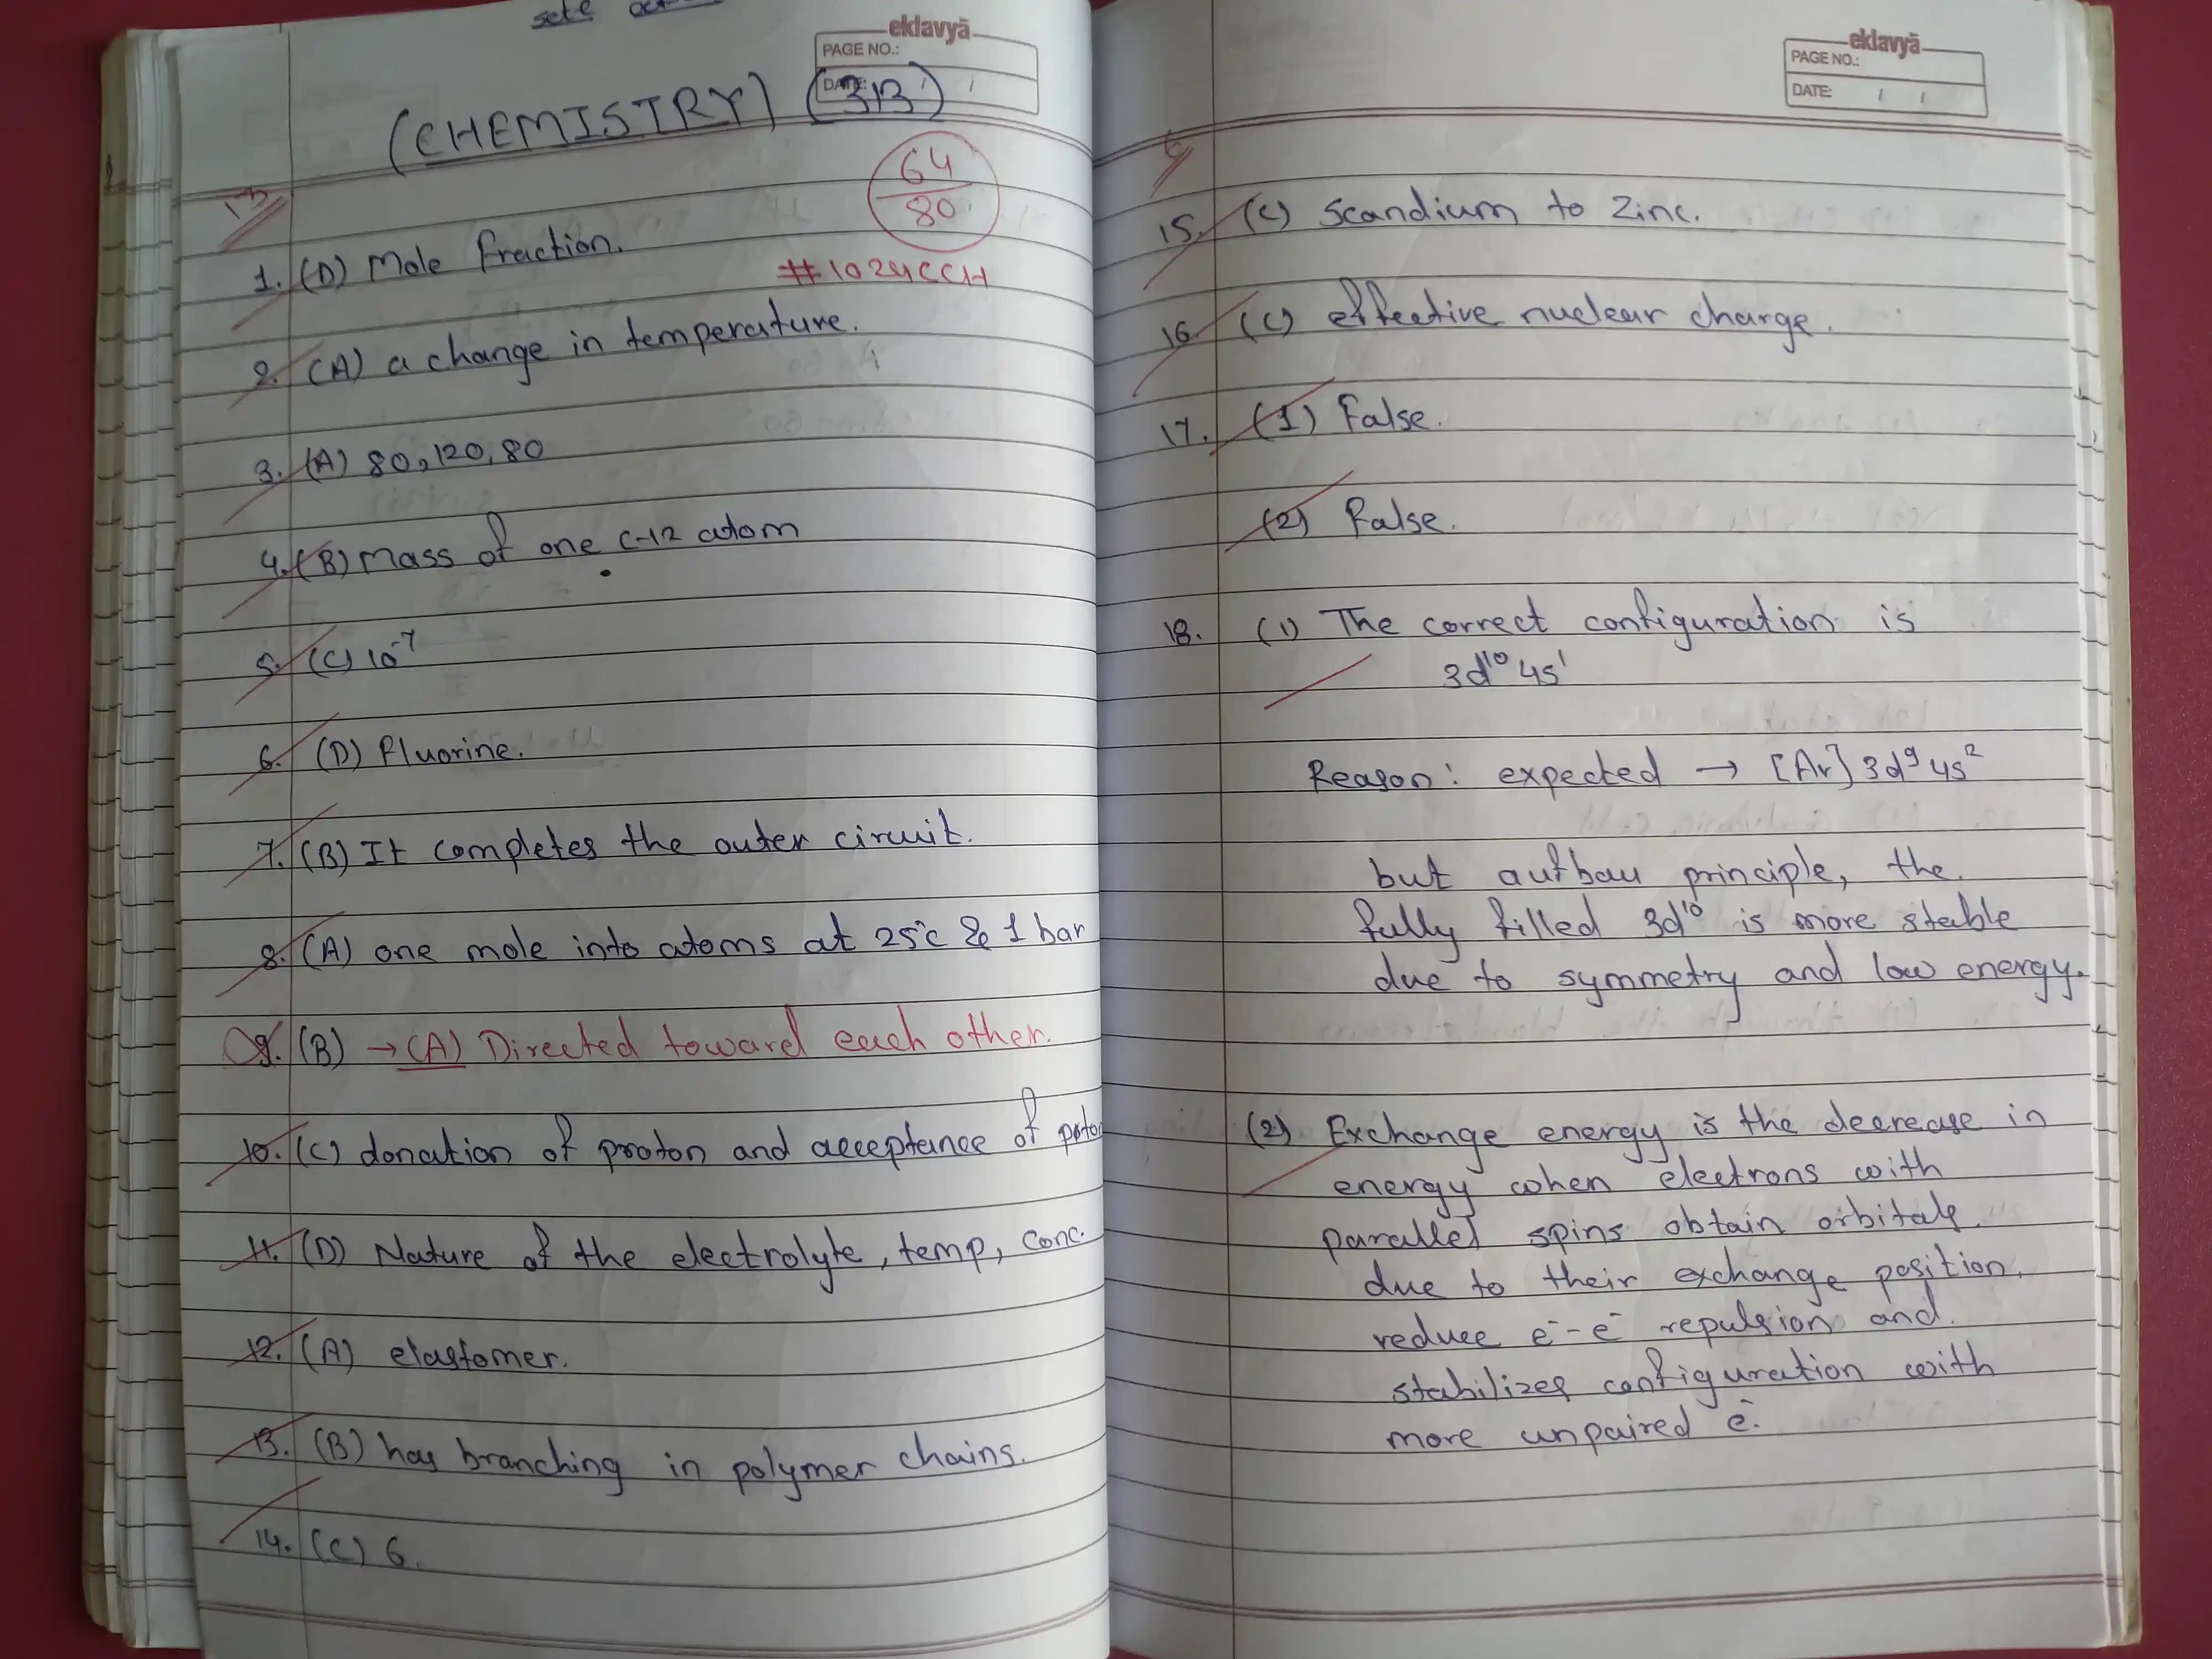 eklavyā
PAGE NO.:
DATE:
(CHEMISTRY) (313)
13
64
80
#1024CCH
1. (D) Mole fraction.
2. (A) a change in temperature.
3. (A) 80, 120, 80
4. (B) Mass of one C-12 atom
5. (C) 10⁻⁷
6. (D) Fluorine.
7. (B) It completes the outer circuit.
8. (A) one mole into atoms at 25°c & 1 bar
9. (B) → (A) Directed toward each other.
10. (C) donation of proton and acceptance of proton
11. (D) Nature of the electrolyte, temp, conc.
12. (A) elastomer.
13. (B) has branching in polymer chains.
14. (C) 6.
eklavyā
PAGE NO.:
DATE: / /
6
15. (C) Scandium to Zinc.
16. (C) effective nuclear charge.
17. (1) False.
(2) False.
18. (1) The correct configuration is
3d¹⁰ 4s¹
Reason: expected → [Ar] 3d⁹ 4s²
but aufbau principle, the
fully filled 3d¹⁰ is more stable
due to symmetry and low energy.
(2) Exchange energy is the decrease in
energy when electrons with
parallel spins obtain orbitals
due to their exchange position,
reduce e⁻-e⁻ repulsion and
stabilizes configuration with
more unpaired e⁻.